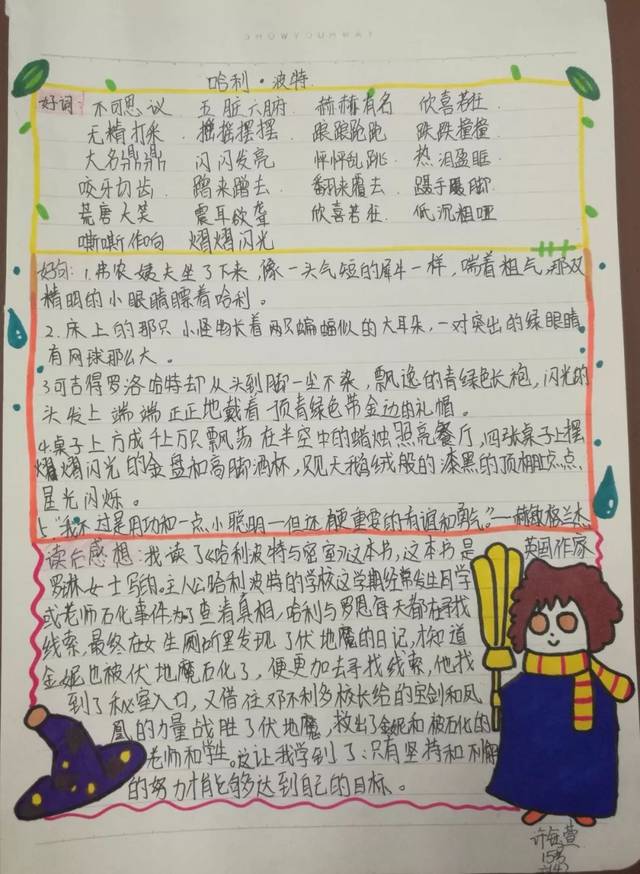 SHOWYOURWAY
哈利·波特
好词: 不可思议 五脏六腑 赫赫有名 欣喜若狂
无精打采 摇摇摆摆 踉踉跄跄 跌跌撞撞
大名鼎鼎 闪闪发亮 怦怦乱跳 热泪盈眶
咬牙切齿 蹭来蹭去 翻来覆去 蹑手蹑脚
荒唐大笑 震耳欲聋 欣喜若狂 低沉粗哑
嘶嘶作响 熠熠闪光
好句: 1.弗农姨夫坐了下来,像一头气短的犀牛一样,喘着粗气,那双
精明的小眼睛瞟着哈利。
2.床上的那只小怪物长着两只蝙蝠似的大耳朵,一对突出的绿眼睛
有网球那么大。
3.可吉得罗·洛哈特却从头到脚一尘不染,飘逸的青绿色长袍,闪光的
头发上端端正正地戴着一顶青绿色带金边的礼帽。
4.桌子上方成千上万只飘荡在半空中的蜡烛照亮餐厅,四张桌子上摆
熠熠闪光的金盘和高脚酒杯,只见天鹅绒般的漆黑的顶棚上点点
星光闪烁。
5."我不过是用功和一点小聪明—但还有更重要的有谊和勇气。"——赫敏·格兰杰
读后感想:我读了《哈利波特与密室》这本书,这本书是 英国作家
罗琳女士写的。主人公哈利波特的学校这学期经常发生同学
或老师石化事件,为了查清真相,哈利与罗恩每天都在寻找
线索,最终在女生厕所里发现了伏地魔的日记,才知道
金妮也被伏地魔石化了,便更加去寻找线索,他找
到了秘室入口,又借住邓不利多校长给的宝剑和凤
凰的力量战胜了伏地魔,救出了金妮和被石化的
老师和学生。这让我学到了:只有坚持和不懈
的努力才能够达到自己的目标。
15号